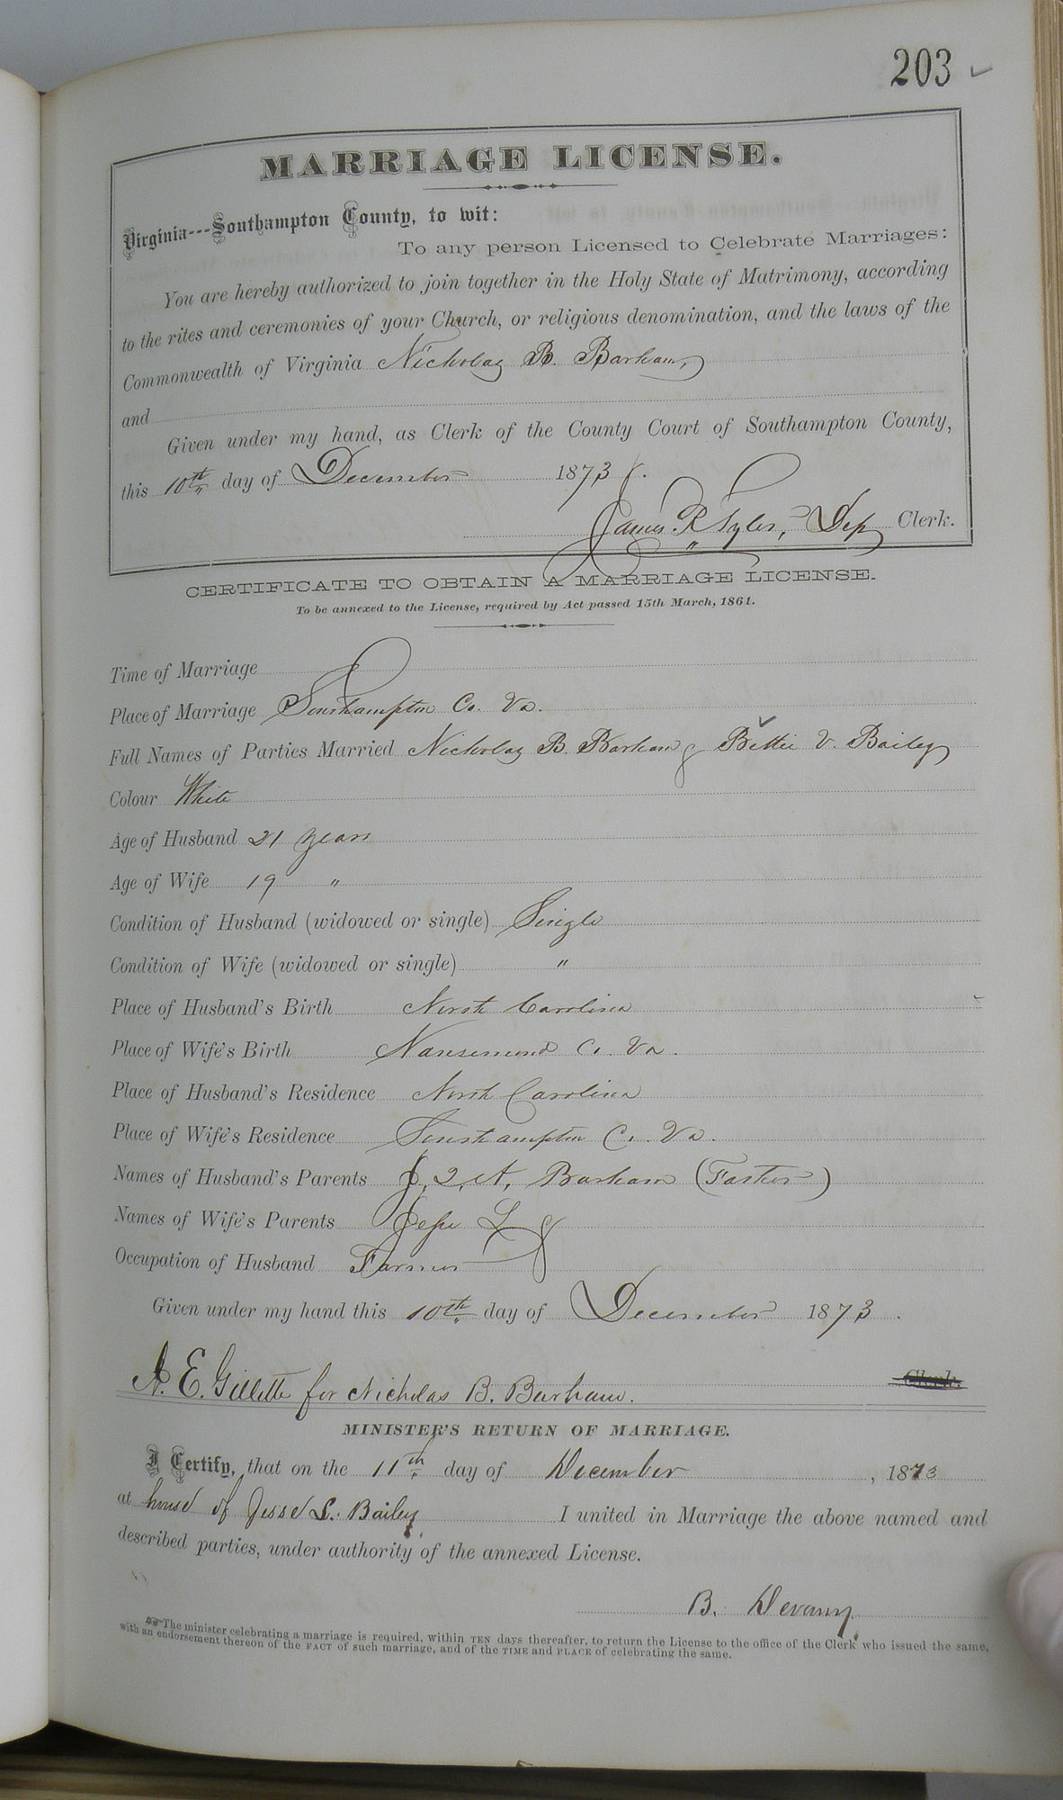 203
MARRIAGE LICENSE.
Virginia---Southampton County, to wit:
To any person Licensed to Celebrate Marriages:
You are hereby authorized to join together in the Holy State of Matrimony, according
to the rites and ceremonies of your Church, or religious denomination, and the laws of the
Commonwealth of Virginia Nicholas B. Barham,
and
Given under my hand, as Clerk of the County Court of Southampton County,
this 10th day of December 1873.
James R. Tyler, Dep Clerk.
CERTIFICATE TO OBTAIN A MARRIAGE LICENSE.
To be annexed to the License, required by Act passed 15th March, 1861.
Time of Marriage
Place of Marriage Southampton Co. Va.
Full Names of Parties Married Nicholas B. Barham & Bettie V. Bailey
Colour White
Age of Husband 21 years
Age of Wife 19 "
Condition of Husband (widowed or single) Single
Condition of Wife (widowed or single) "
Place of Husband's Birth North Carolina
Place of Wife's Birth Nansemond Co. Va.
Place of Husband's Residence North Carolina
Place of Wife's Residence Southampton Co. Va.
Names of Husband's Parents J. Q. A. Barham (Father)
Names of Wife's Parents Jesse L &
Occupation of Husband Farmer
Given under my hand this 10th day of December 1873.
A. E. Gillette for Nicholas B. Barham. Clerk.
MINISTER'S RETURN OF MARRIAGE.
I Certify, that on the 11th day of December, 1873
at house of Jesse L. Bailey I united in Marriage the above named and
described parties, under authority of the annexed License.
B. Devany
The minister celebrating a marriage is required, within TEN days thereafter, to return the License to the office of the Clerk who issued the same,
with an endorsement thereon of the FACT of such marriage, and of the TIME and PLACE of celebrating the same.